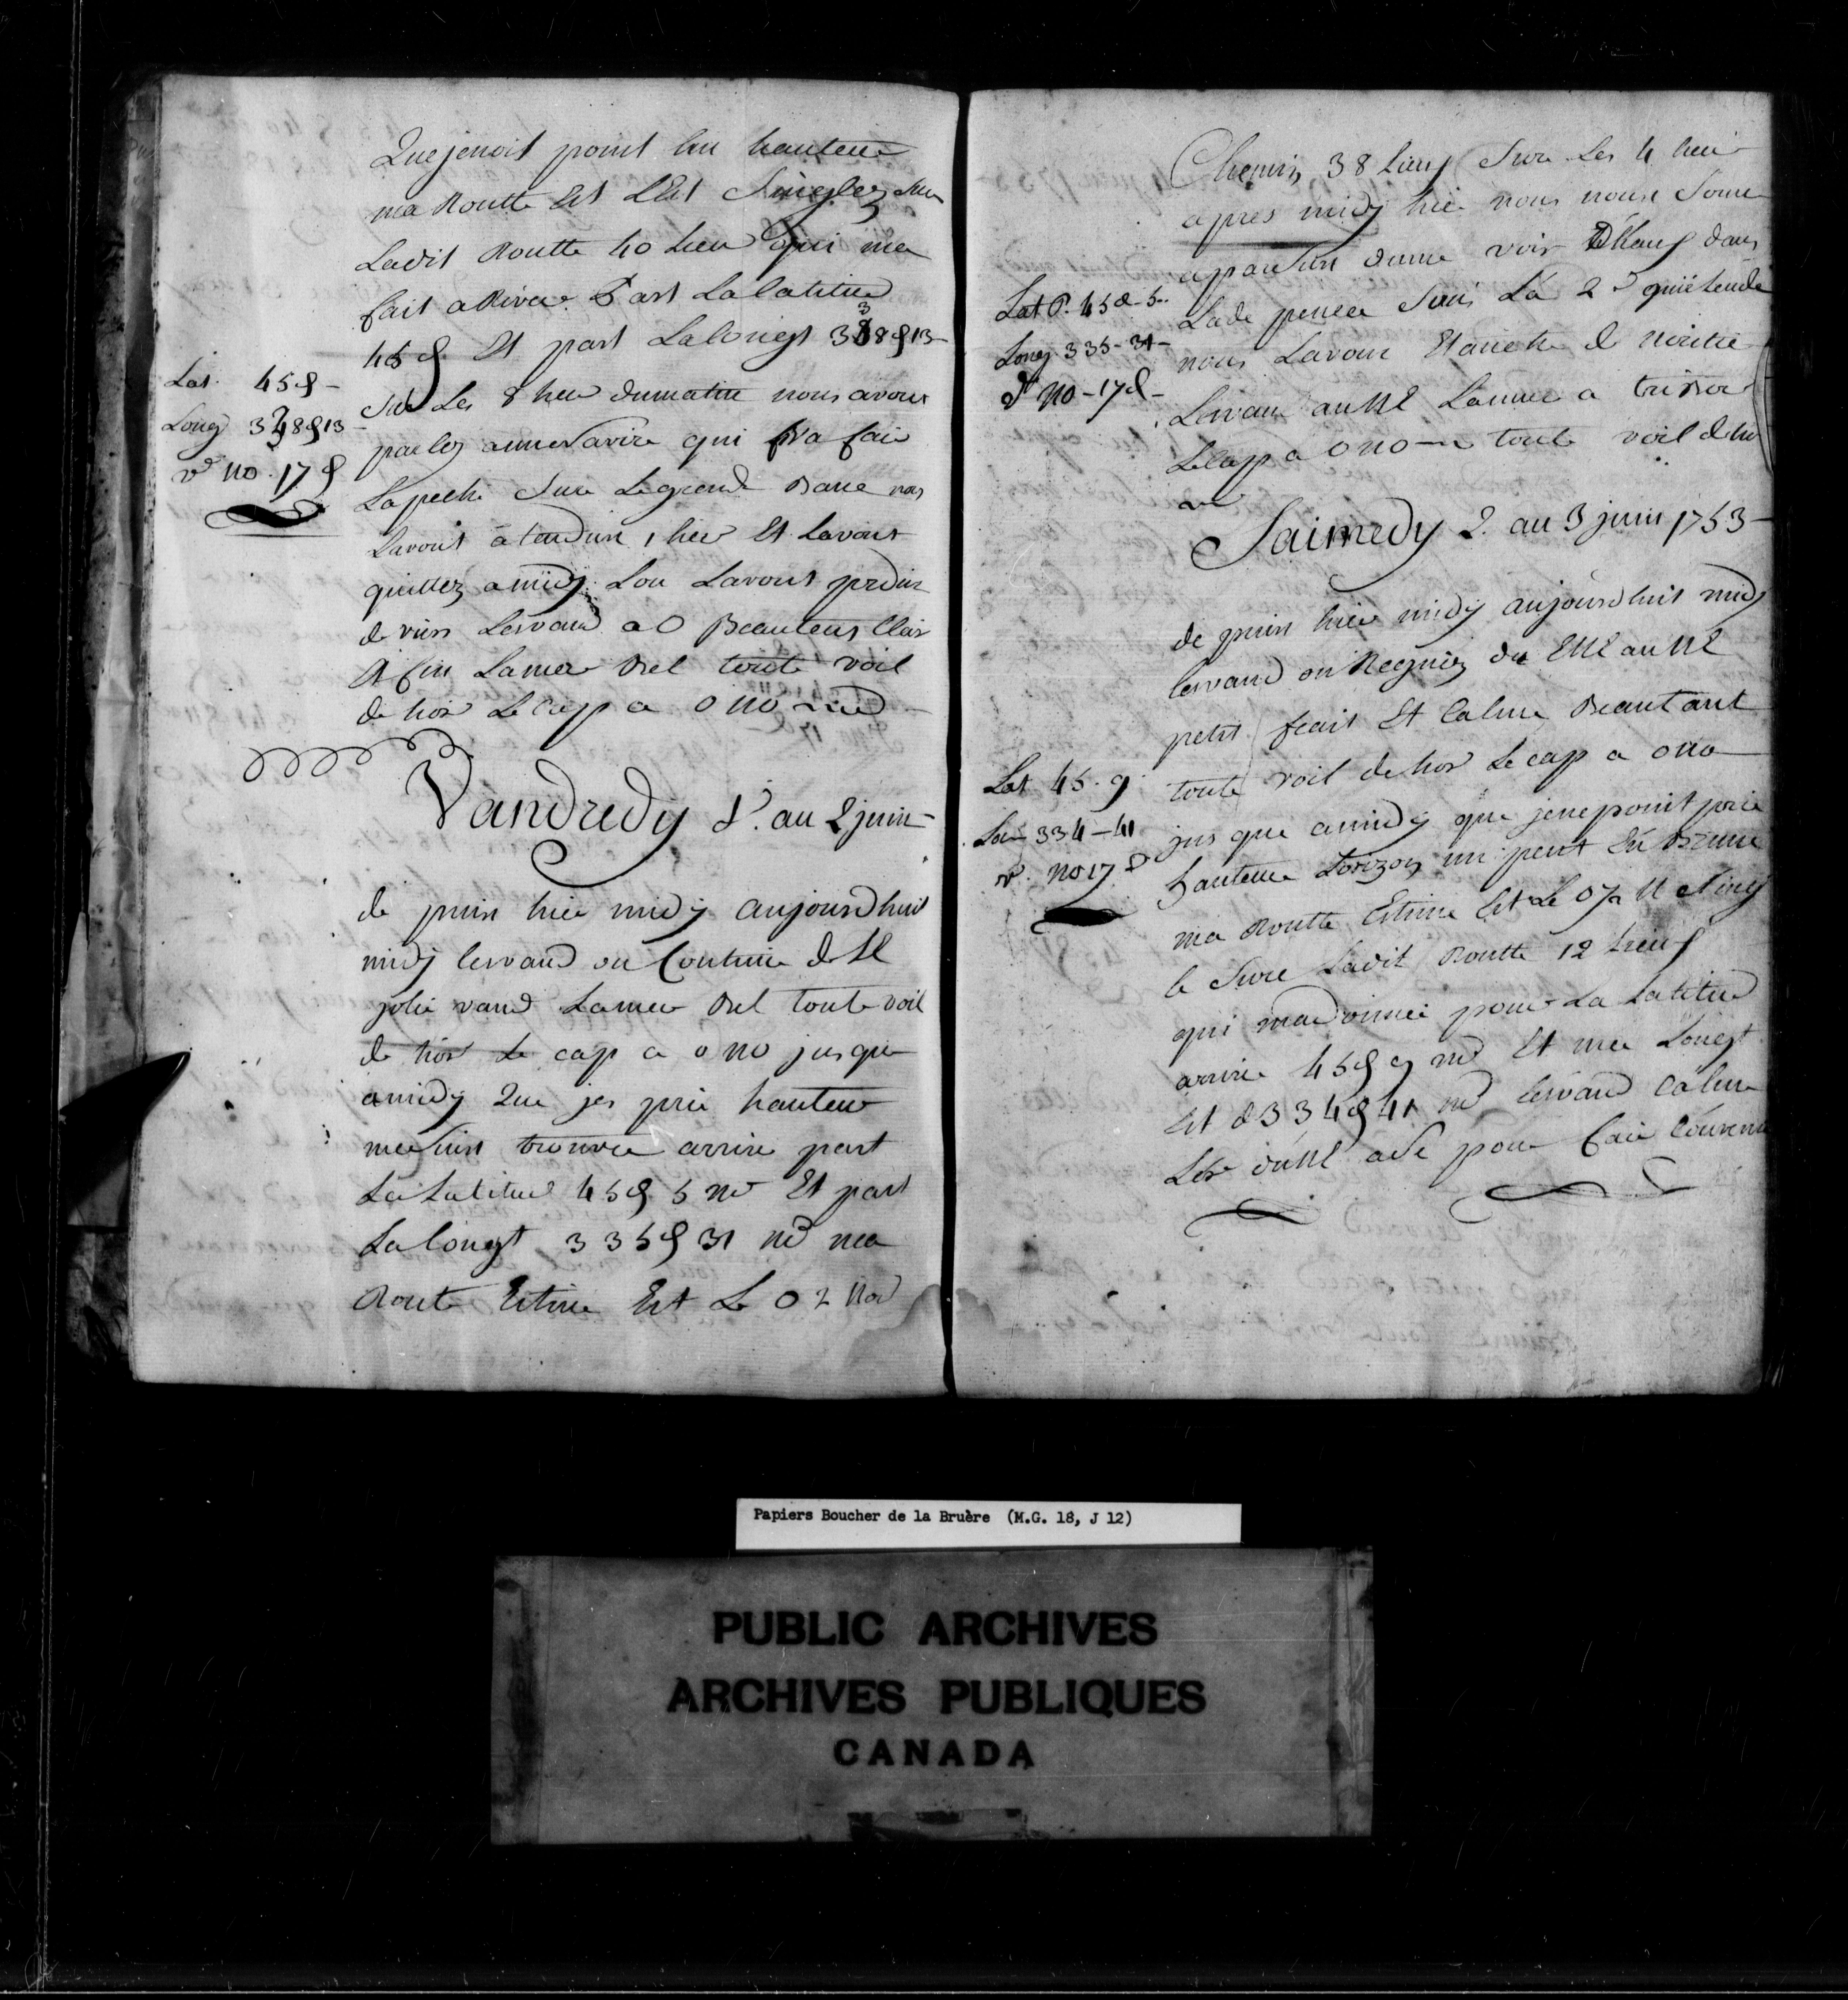 Que jenoit point hu hauteur
ma Routte Est LEst Singlez sur
Ladit Routte 40 lieu qui ma
fait aRiver Part La latitue
45 d Et part La longt 338 d 13
Lat. 45 d -
Long 338 d 13 -
vd no. 17 d
Sur Les 8 heu dumatin nous avons
parlez aunnavire qui va fair
La peche Sure Le grand Banc nous
Lavont atandun 1 heu Et Lavont
quittez a midy Lou Lavont
de Levand a O Beautems Clair
Et fin Lamer Bel toute voil
de hor Le Cap a O no
Vandredy 1r. au 2 juin
de puis hier midy aujourdhuit
midy levand ou Continue
jolie vand Lamer Bel toute voil
de hor Le cap a o no jusque
a midy Que jes prie hauteur
me suis trouvée arrivé part
La Latitue 45 d 5 md Et part
La longt 335 d 31 md ma
Route Estime Est Le O 2 Nod
Chemin 38 Lieus Sure Les 4 heur
apres midy hier nous nous Some
apparsus dunne voir D'Eau dans
La de pence Sous La 2d
nous Lavons Etanche
Levand au NE Lamer a
Le Cap a O no toute voil de hor
Lat P. 45 d - 5
Long. 335 - 31 -
vd no - 17 d -
Saimedy 2. au 3 juin 1753
de puis hier midy aujourdhuit midy
levand on Regniez de ENE au NE
petit frais Et Calme Beautant
toute voil de hor Le cap a ono
jus que a midy que jene point prie
hauteur Lorizon un peut En Brume
ma Routte Estime Est Le O
le Sure Ladit Routte 12 Lieus
qui madonnée pour La Latitue
arrivée 45 d 9 md Et ma Longt
Est d 334 d 41 md Levand Calme
pour fair
Lat 45. 9
Lon 334 - 41
vd. no 17 d
Papiers Boucher de la Bruère (M.G. 18, J 12)
PUBLIC ARCHIVES
ARCHIVES PUBLIQUES
CANADA